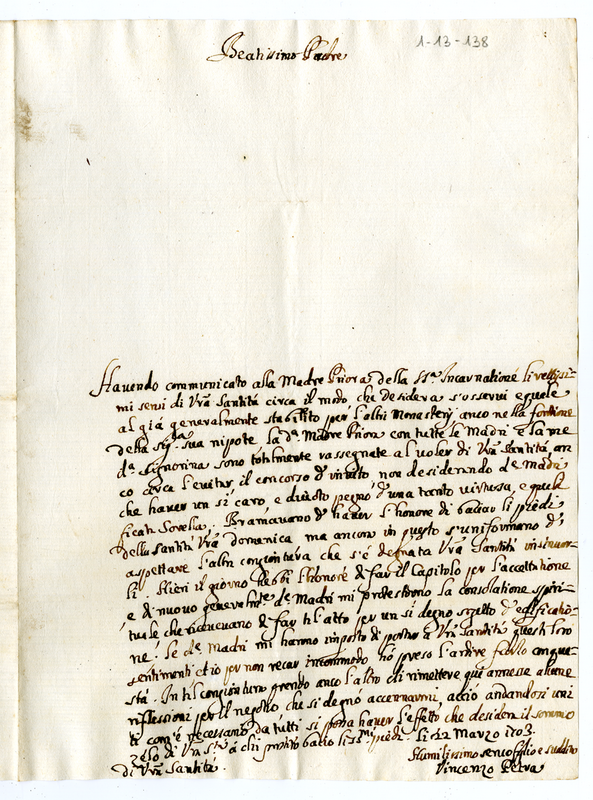 1-13-138
Beatissimo Padre
Havendo communicato alla Madre Priora della SS.ª Incarnatione li rettissi-
mi sensi di Vrã Santità circa il modo che desidera s'osservi eguale
al già generalmente stabilito per l'altri Monasterÿ anco nella fontione
della sig.ra sua nipote la d.ª Madre Priora con tutte le Madri e la me
d.ª Signorina sono totalmente rassegnate al voler di Vrã Santità, an
co circa l'evitar il concorso d'invito non desiderando d.e Madri
che haver un sì caro, e pegno d'una tanto virtuosa, e
Sorella. Bramavano d'haver l'honore di baciar li piedi
della Santità Vrã domenica ma ancora in questo s'uniformano d'
aspettare l'altra congiuntura che s'è degnata Vrã Santità
li. Hieri il giorno hebbi l'honore di far il Capitolo per l'accettatione
e di nuovo generalm.te d.e Madri mi protestorno la consolatione spiri-
tuale che ricevevano di far tal atto per un sì degno
ne. Le d.e Madri mi hanno imposto di portar a Vrã Santità questi loro
sentimenti et io per non recar incommodo hò preso l'ardire farlo con
sta. In tal congiuntura prendo anco l'altro di rimettere qui annesse alcune
riflessioni per il negotio che si degnò accennarmi, acciò andandosi uni
ti com'è necessario da tutti si possa haver l'effetto che desidera il sommo
zelo di Vrã S.tà à chi prostrato bacio li SS.mi piedi. li 12 Marzo 1703.
di Vrã Santità
Humilissimo servo e suddito
Vincenzo Petra